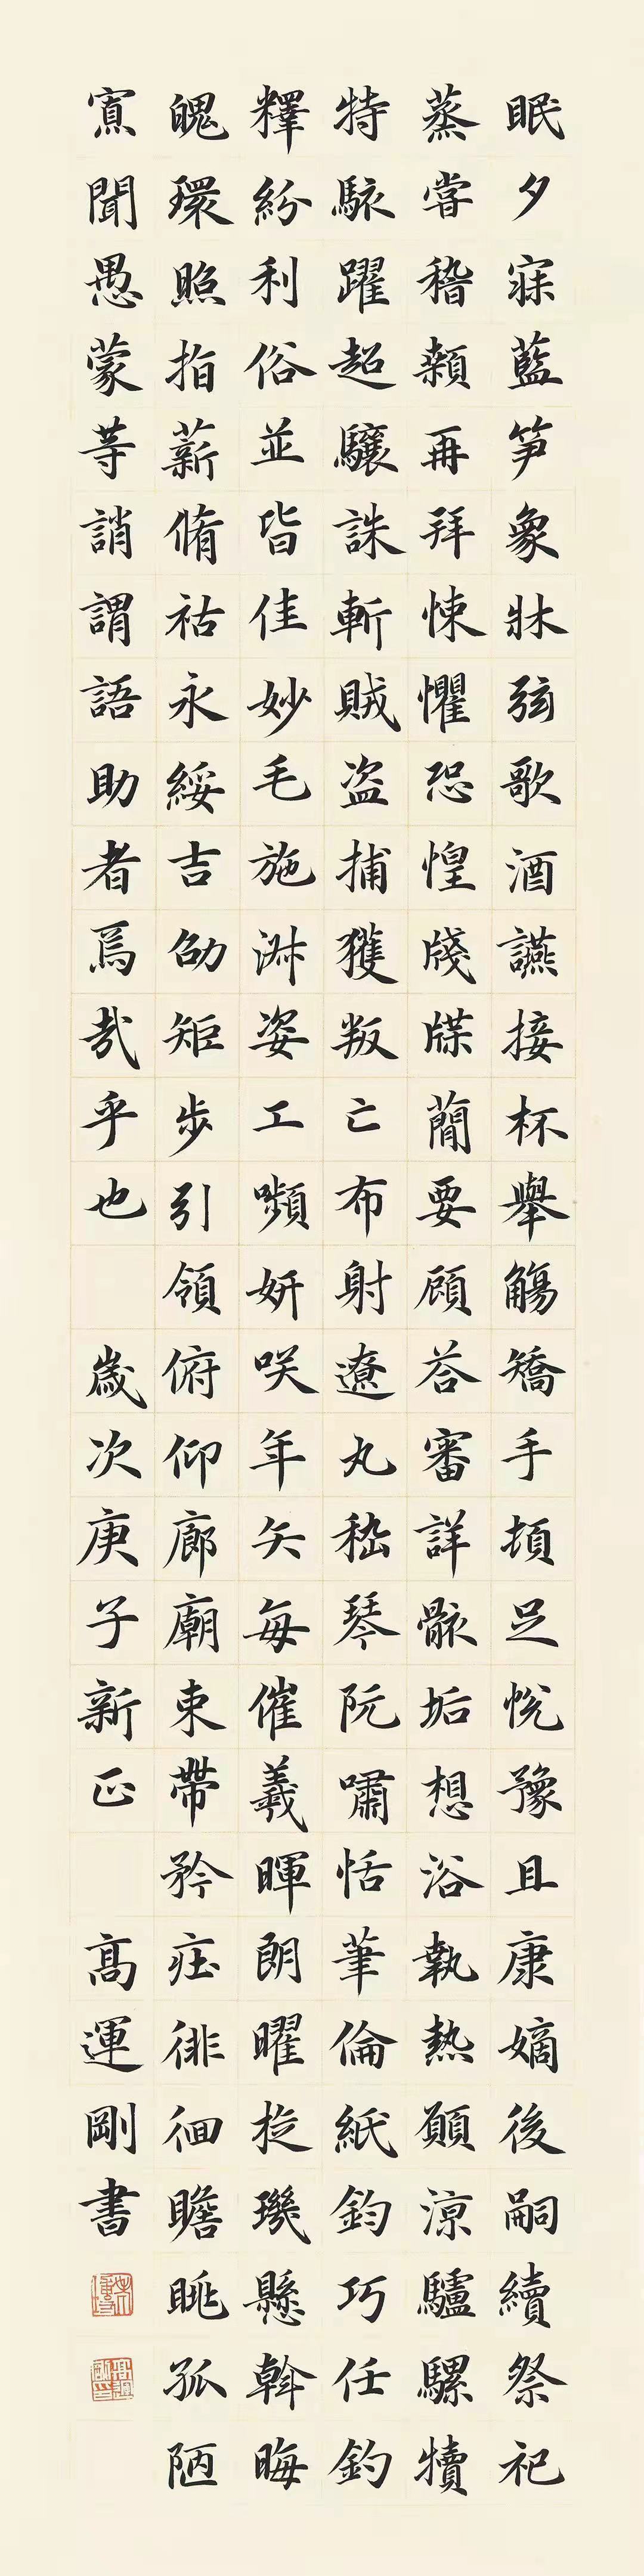 眠夕寐藍笋象牀弦歌酒讌接杯舉觴矯手頓足悅豫且康嫡後嗣續祭祀
蒸嘗稽顙再拜悚懼恐惶牋牒簡要顧荅審詳骸垢想浴執熱願涼驢騾犢
特駭躍超驤誅斬賊盗捕獲叛亡布射遼丸嵇琴阮嘯恬筆倫紙鈞巧任釣
釋紛利俗並皆佳妙毛施淑姿工嚬妍咲年矢每催羲暉朗曜旋璣懸斡晦
魄環照指薪脩祜永綏吉劭矩步引領俯仰廊廟束帶矜莊徘徊瞻眺孤陋
寡聞愚蒙等誚謂語助者焉哉乎也 歲次庚子新正 髙運剛書